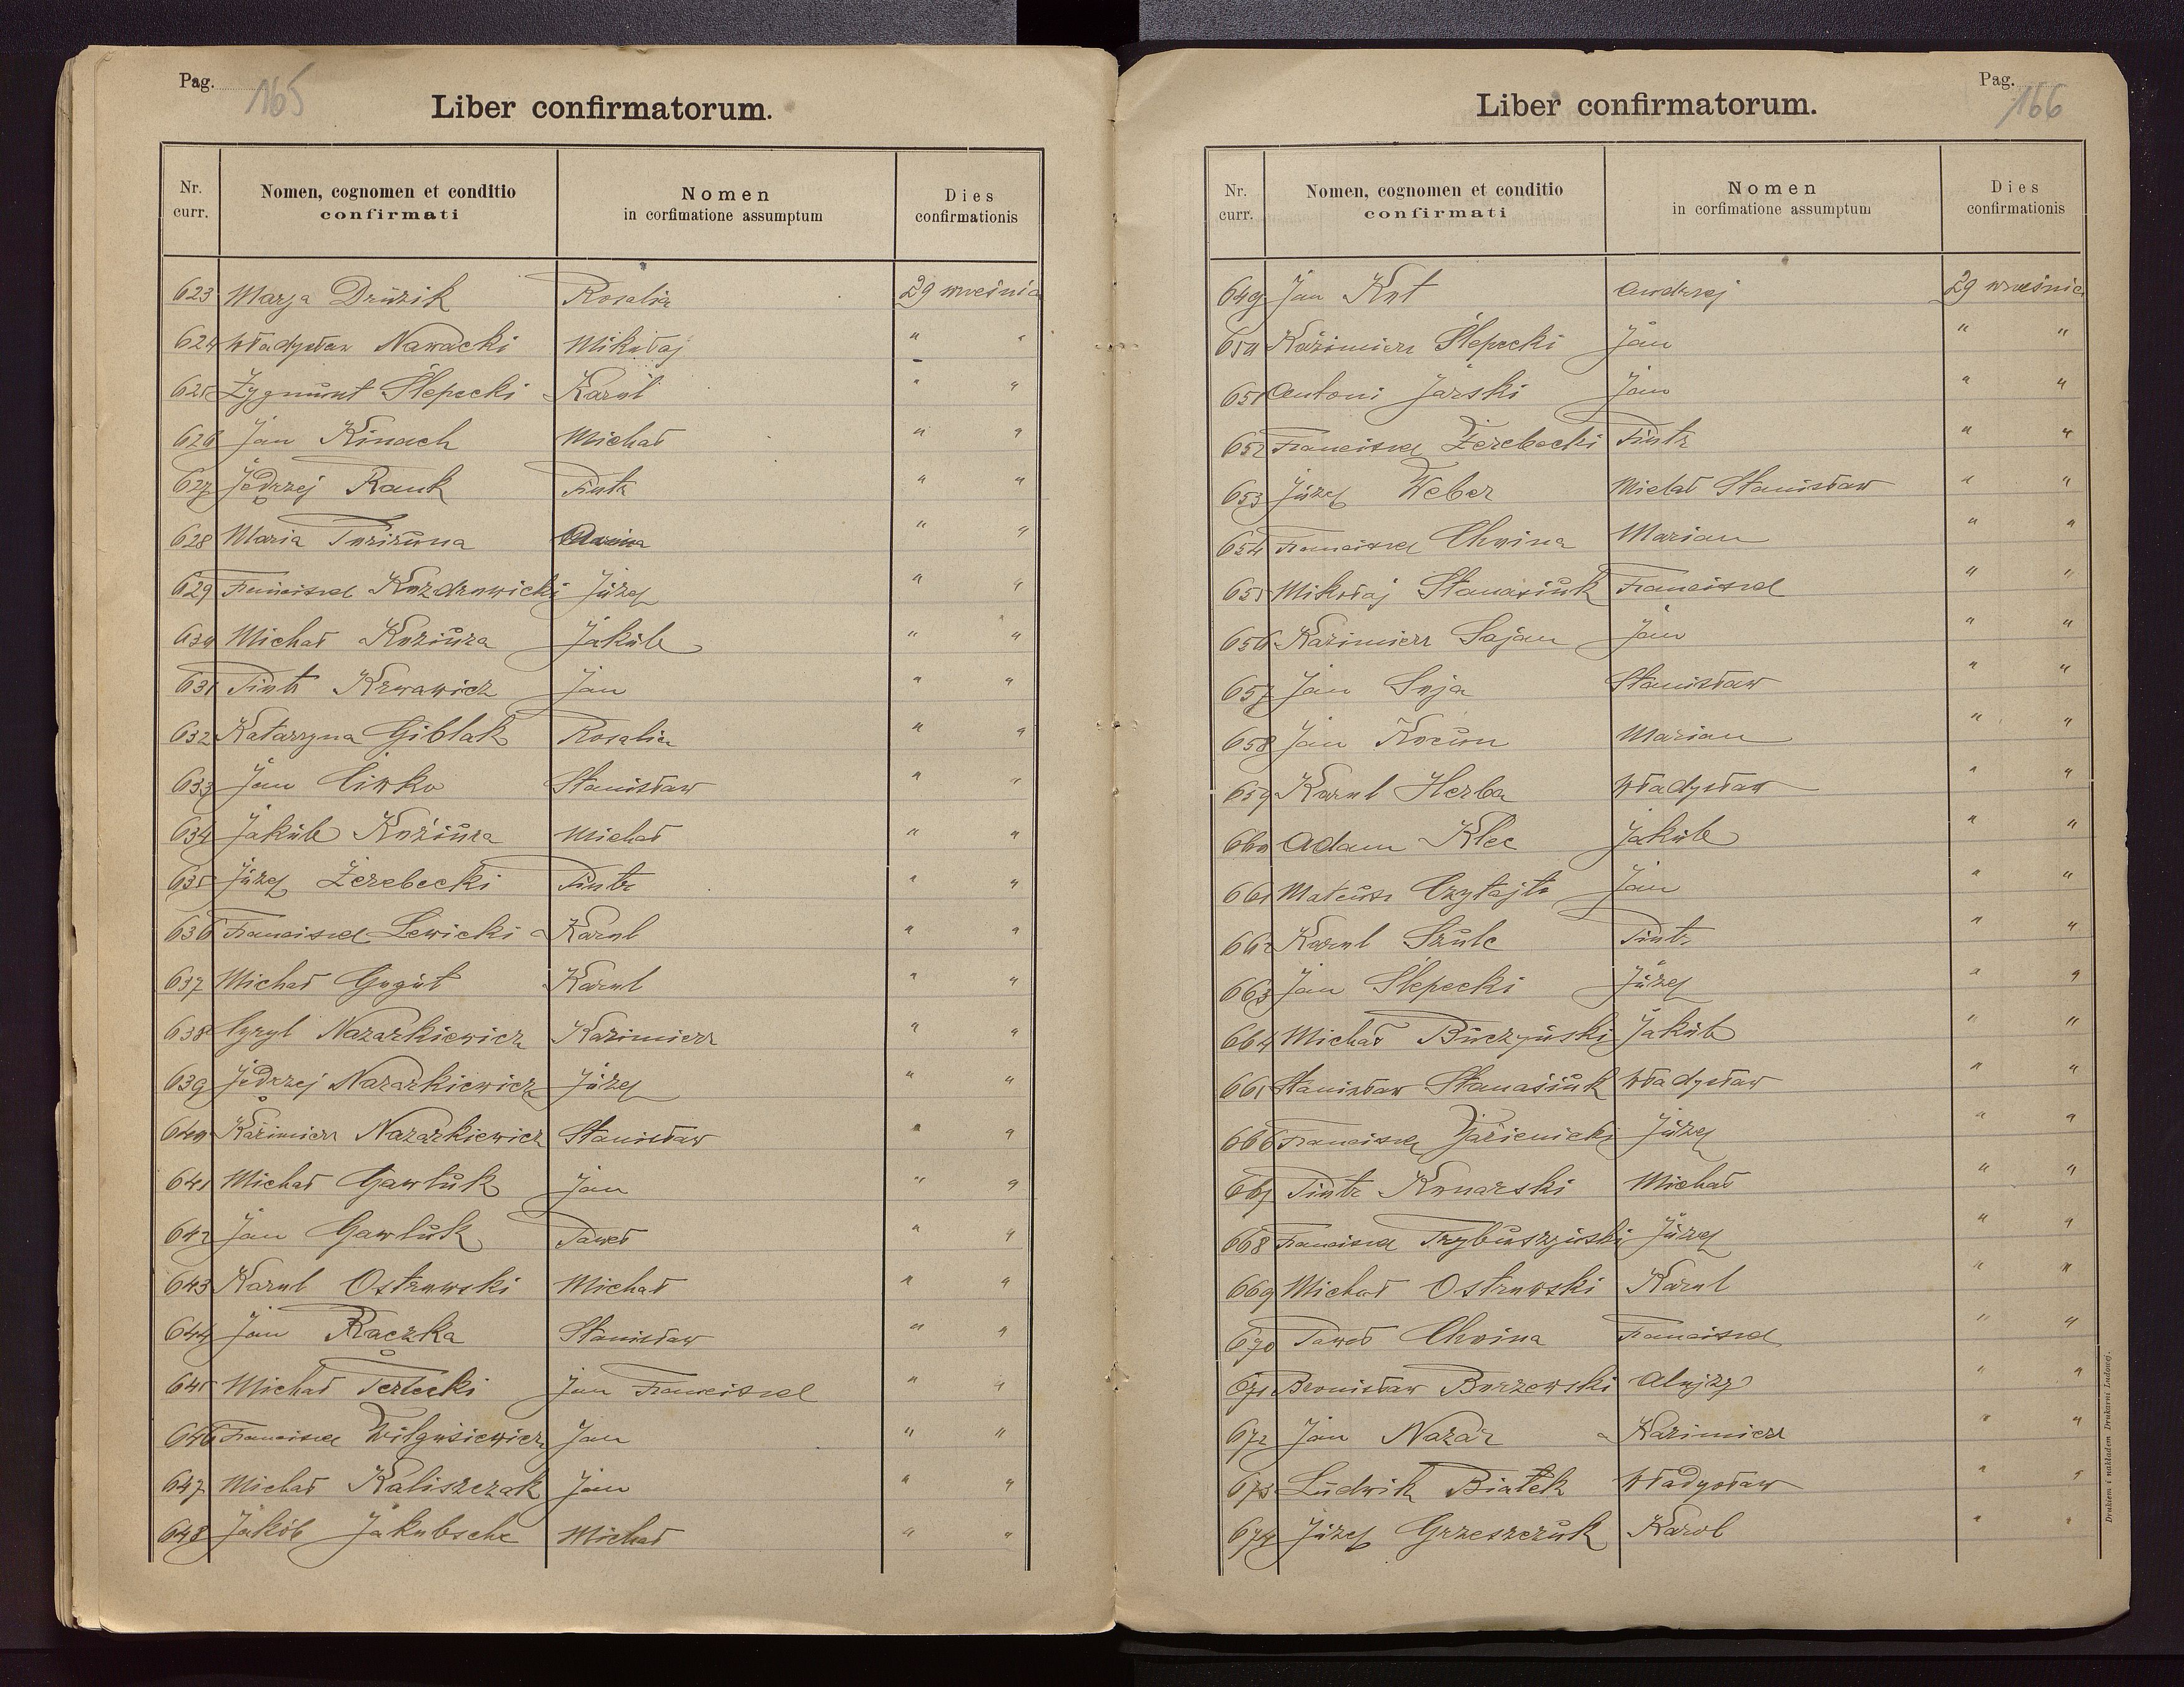 Pag. 165
Liber confirmatorum.
Nr. curr. Nomen, cognomen et conditio confirmati Nomen in corfimatione assumptum Dies confirmationis
623 Marja Druzik Rosalia 29 września
624 Władysław Nawacki Mikołaj " "
625 Zygmunt Ślepecki Karol " "
626 Jan Kinach Michał " "
627 Jędrzej Rauk Piotr " "
628 Maria " "
629 Franciszek Kozdrowicki Józef " "
630 Michał Koziura Jakub " "
631 Piotr Krwawicz Jan " "
632 Katarzyna Giblak Rosalia " "
633 Jan Ciwko Stanisław " "
634 Jakub Koziura Michał " "
635 Józef Żerebecki Piotr " "
636 Franciszek Lewicki Karol " "
637 Michał Gogút Karol " "
638 Cyryl Nazarkiewicz Kazimierz " "
639 Jędrzej Nazarkiewicz Józef " "
640 Kazimierz Nazarkiewicz Stanisław " "
641 Michał Gawluk Jan " "
642 Jan Gawluk Paweł " "
643 Karol Ostrowski Michał " "
644 Jan Rączka Stanisław " "
645 Michał Terlecki Jan Franciszek " "
646 Franciszek Wilgusiewicz Jan " "
647 Michał Kaliszczak Jan " "
648 Jakób Jakubsche Michał " "
Pag. 166
Liber confirmatorum.
Nr. curr. Nomen, cognomen et conditio confirmati Nomen in corfimatione assumptum Dies confirmationis
649 Jan Kot Andrzej 29 września
650 Kazimierz Ślepecki Jan " "
651 Antoni Jarski Jan " "
652 Franciszek Żerebecki Piotr " "
653 Józef Weber Michał Stanisław " "
654 Franciszek Choina Marian " "
655 Mikołaj Stanasiuk Franciszek " "
656 Kazimierz Sajan Jan " "
657 Jan Soja Stanisław " "
658 Jan Kocur Marian " "
659 Karol Herba Władysław " "
660 Adam Klec Jakub " "
661 Mateusz Czytajło Jan " "
662 Karol Szulc Piotr " "
663 Jan Ślepecki Józef " "
664 Michał Buczyński Jakub " "
665 Stanisław Stanasiuk Władysław " "
666 Franciszek Jasienicki Józef " "
667 Piotr Konarski Michał " "
668 Franciszek Trybuszyński Józef " "
669 Michał Ostrowski Karol " "
670 Paweł Choina Franciszek " "
671 Bronisław Borzewski Alojzy " "
672 Jan Nazar Kazimierz " "
673 Ludwik Białek Władysław " "
674 Józef Grzeszczuk Karol " "
Drukiem i nakładem Drukarni Ludowej.